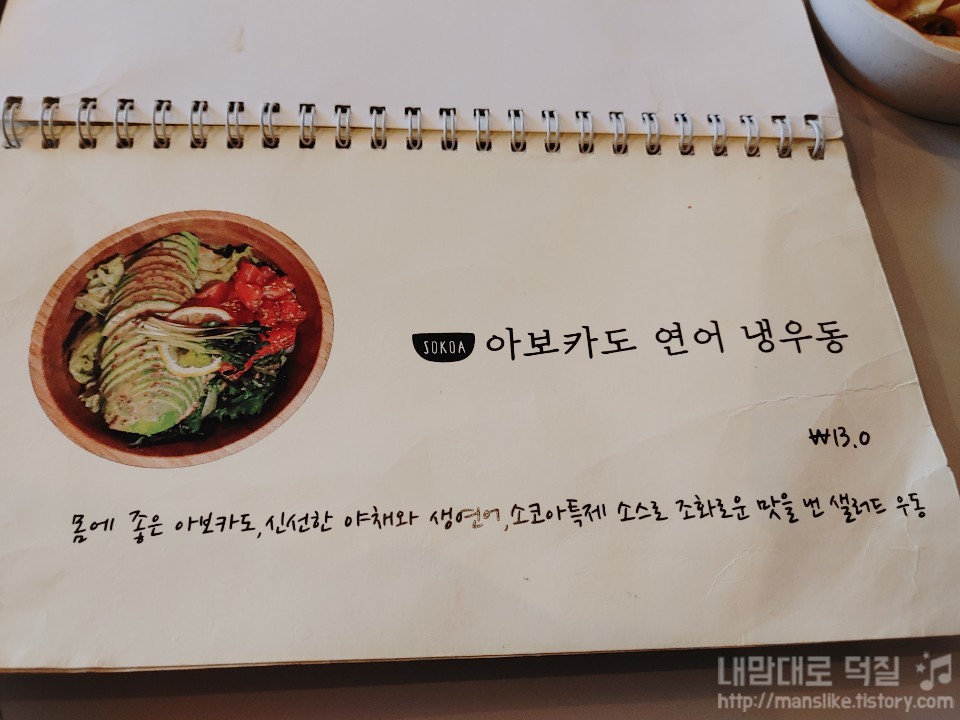 SOKOA 아보카도 연어 냉우동
₩13.0
몸에 좋은 아보카도, 신선한 야채와 생연어, 소코아특제 소스로 조화로운 맛을 낸 샐러드 우동
내맘대로 덕질
http://manslike.tistory.com